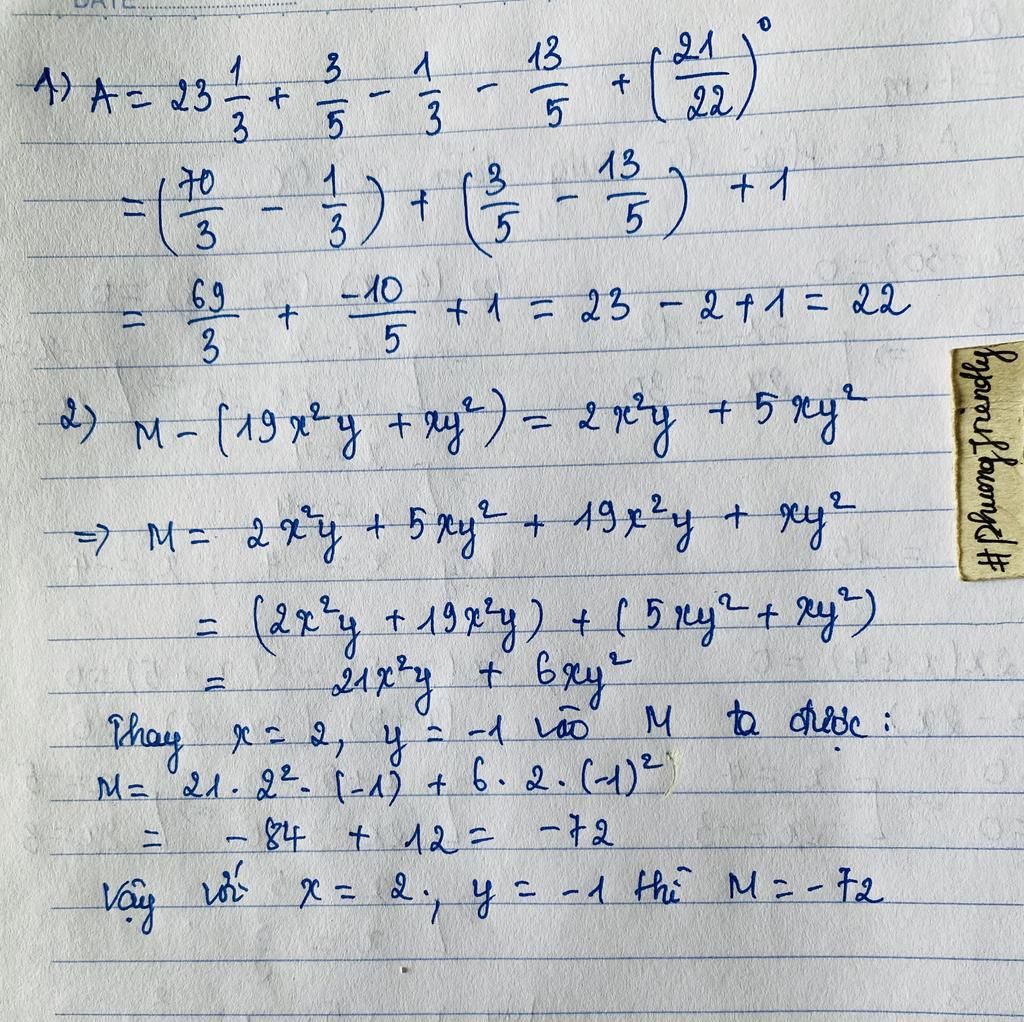 DATE
1) A = 23 1/3 + 3/5 - 1/3 - 13/5 + (21/22)⁰
= (70/3 - 1/3) + (3/5 - 13/5) + 1
= 69/3 + -10/5 + 1 = 23 - 2 + 1 = 22
2) M - (19x²y + xy²) = 2x²y + 5xy²
=> M = 2x²y + 5xy² + 19x²y + xy²
= (2x²y + 19x²y) + (5xy² + xy²)
= 21x²y + 6xy²
Thay x = 2, y = -1 vào M ta được :
M = 21 . 2² . (-1) + 6 . 2 . (-1)²
= - 84 + 12 = - 72
Vậy với x = 2 ; y = -1 thì M = - 72